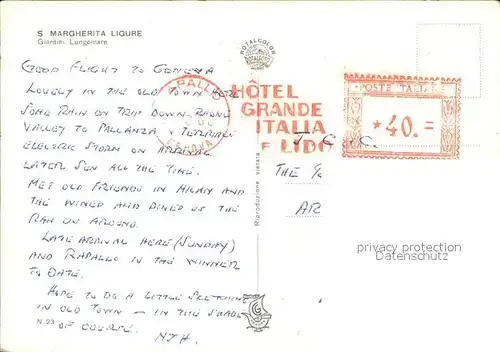 S MARGHERITA LIGURE
Giardini Lungomare
GOOD FLIGHT TO GENEVA
LOVELY IN THE OLD TOWN HERE
SOME RAIN ON TRIP DOWN RHONE
VALLEY TO PALLANZA & TERRIFIC
ELECTRIC STORM ON ARRIVAL
LATER SUN ALL THE TIME.
MET OLD FRIENDS IN MILAN AND
THE WINED AND DINED US THE
RAN US AROUND.
LATE ARRIVAL HERE (SUNDAY)
AND RAPALLO IN THE WINNER
TO DATE.
HOPE TO DO A LITTLE SKETCHING
IN OLD TOWN — IN THE SHADE
N 23 OF COURSE. NJH.
ROTALCOLOR
ROTALFOTO
RAPALLO
GENOVA
HÔTEL
GRANDE
ITALIA
E LIDO
POSTE ITALIANE
★ 40. =
THE
AR
Riproduzione vietata
privacy protection
Datenschutz